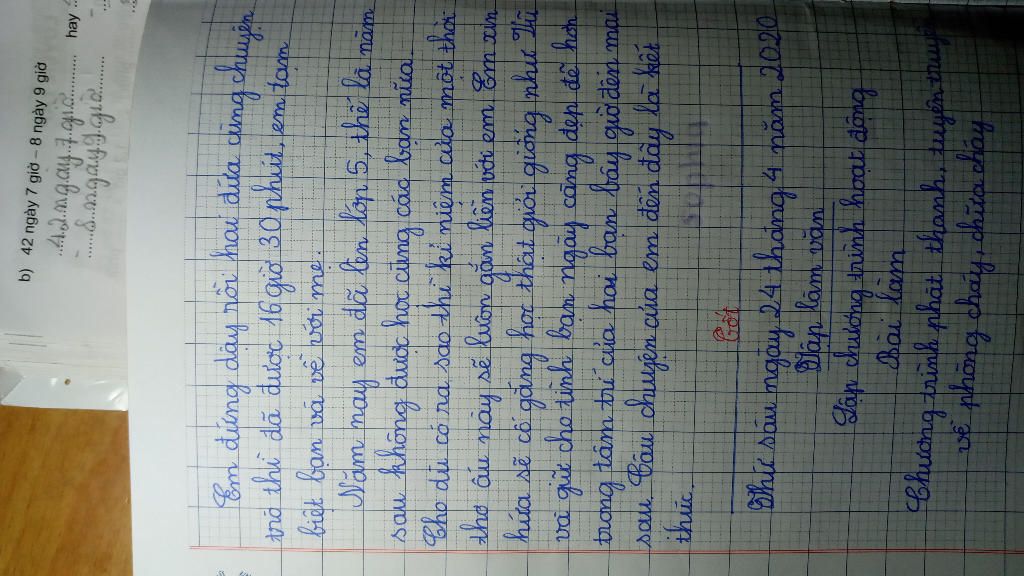 b) 42 ngày 7 giờ – 8 ngày 9 giờ
42 ngày 7 giờ hay
- 8 ngày 9 giờ
Em đứng dậy rồi hai đứa cùng chuyện
trò thì đã được 16 giờ 30 phút, em tạm
biệt bạn và về với mẹ.
Năm nay em đã lên lớp 5, thế là năm
sau không được học cùng các bạn nữa.
Cho dù có ra sao thì kỉ niệm của một thời
thơ ấu này sẽ luôn gắn liền với em. Em xin
hứa sẽ cố gắng học thật giỏi giống như Tú
và giữ cho tình bạn ngày càng đẹp đẽ hơn
trong tâm trí của hai bạn bây giờ đến mai
sau. Câu chuyện của em đến đây là kết
thúc.
Tốt
Thứ sáu ngày 24 tháng 4 năm 2020
Tập làm văn
Lập chương trình hoạt động
Bài làm
Chương trình phát thanh, tuyên truyền
về phòng cháy, chữa cháy